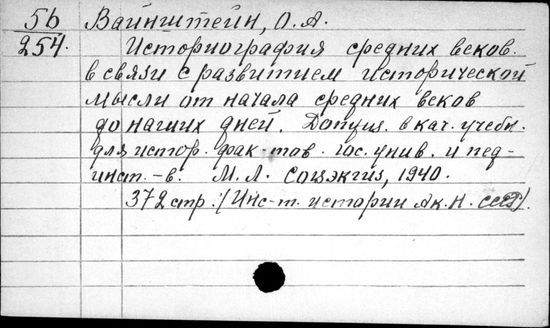 5б Вайнштейн, О.А.
254. Историография средних веков.
в связи с развитием исторической
мысли от начала средних веков
до наших дней. Допущ. в кач. учебн.
для истор. фак-тов. гос. унив. и пед-
инст.-в. М.Л. Соцэкгиз, 1940.
372 стр. (Инс-т. истории Ак. Н. СССР).